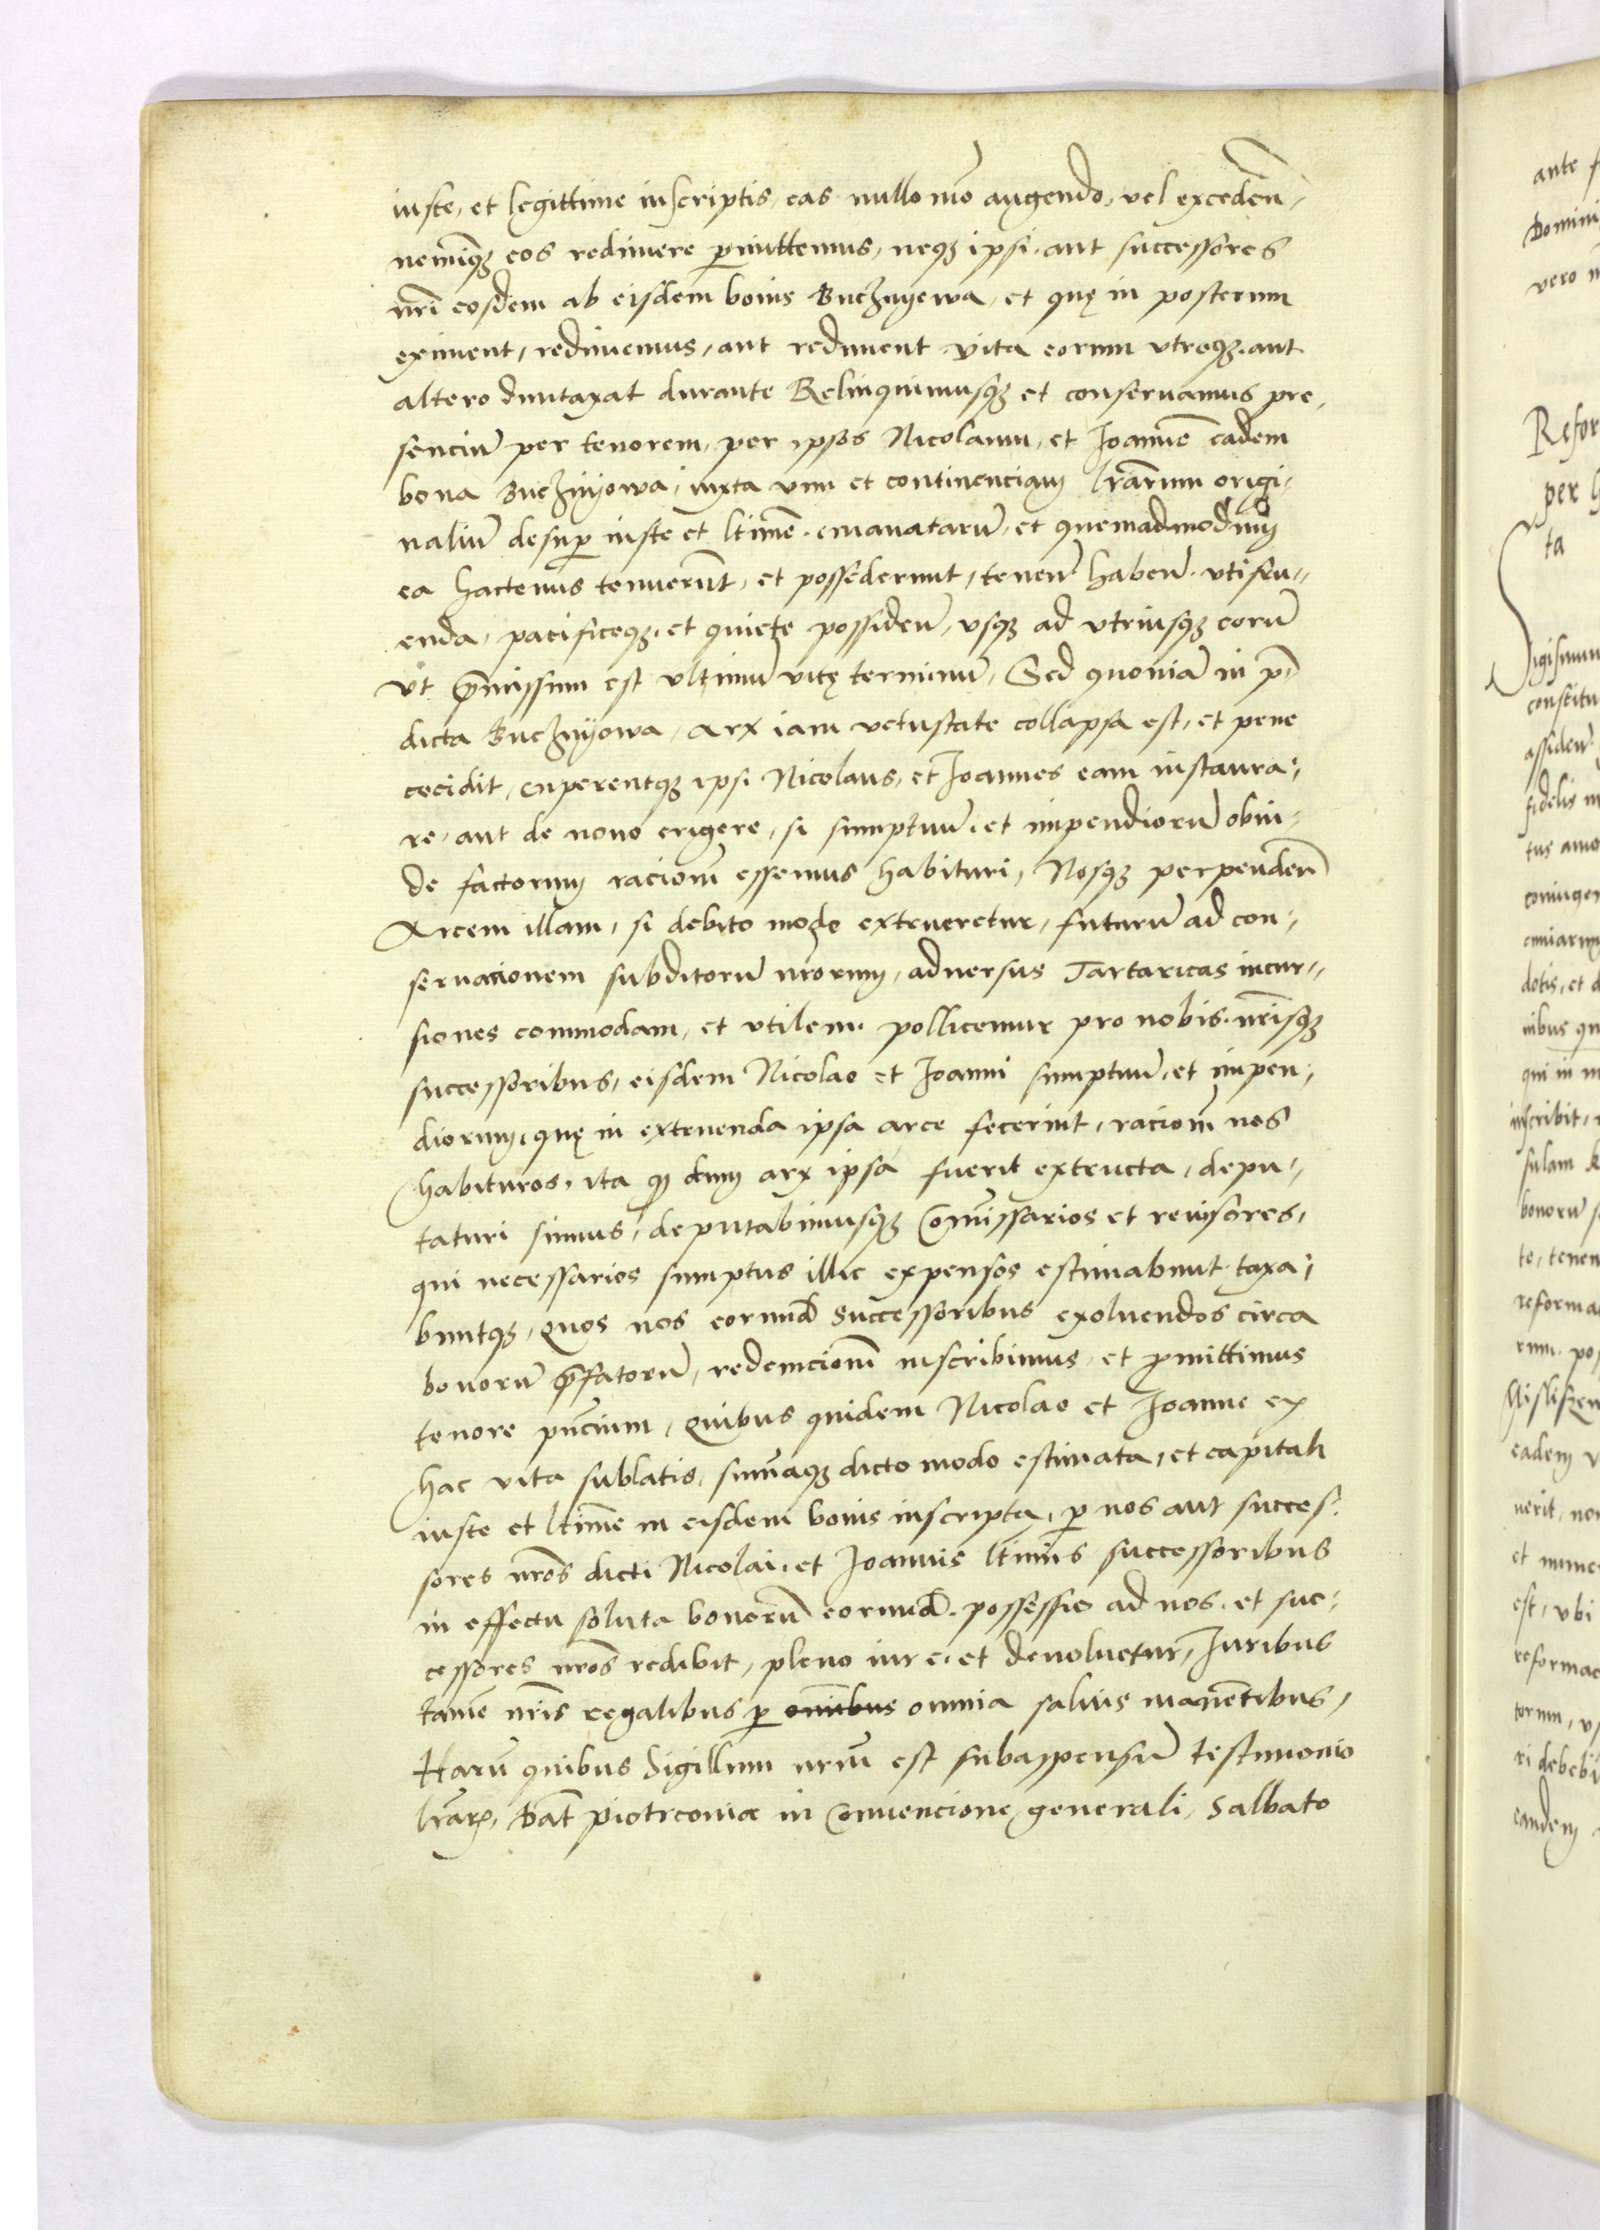 iuste, et legittime inscriptis, eas nullo mo͞ augendo, vel exceden͞,
neminiq; eos redimere p̱mittemus, neq; ipsi, aut successores
nr͞i eosdem ab eisdem bonis Bucznyowa, et quę in posterum
eximent, redimemus, aut rediment vita eorum utroq; aut
altero duntaxat durante Relinquimusq; et conseruamus pre,
senciu͞ per tenorem, per ipsos Nicolaum, et Joanne͞ eadem
bona Bucznyowa, iuxta vim et continenciam lr͞arum origi,
naliu͞ desup̱ iuste et ltime͞ emanataru͞, et quemadmodum
ea hactenus tenueru͞t, et possederunt, tenen͞ haben͞ utifru,,
enda, pacificeq;, et quiete possiden͞, usq; ad utriusq; eoru͞
ut p͞missum est ultimu͞ vitę terminu͞, Sed quonia͞ in p͞
dicta Bucznyowa, Arx iam vetustate collapsa est, et pene
cecidit, cuperentq; ipsi Nicolaus, et Joannes eam instaura,
re, aut de nouo erigere, si sumptuu͞, et impendioru͞ obin,
de factorum racione͞ essemus habituri, Nosq; perpenden͞
Arcem illam, si debito modo extrueretur, futuru͞ ad con,
seruacionem subditoru͞ nr͞orum, aduersus Tartaricas incur,,
siones commodam, et utilem, pollicemur pro nobis, nr͞isq;
successoribus, eisdem Nicolao et Joanni sumptuu͞, et impen,
diorum, quę in extruenda ipsa arce fecerint, racione͞ nos
habituros, ita q͞ dum arx ipsa fuerit extructa, depu,,
taturi simus, deputabimusq; Com͞issarios et reuisores,
qui necessarios sumptus illic expensos estimabunt taxa,
buntq;, Quos nos eorund͞ successoribus exoluendos circa
bonoru͞ p͞fatoru͞, redemcione͞ inscribimus, et p͞mittimus
tenore pn͞cium, Quibus quidem Nicolao et Joanne ex
hac vita sublatis, sum͞aq; dicto modo estimata, et capitali
iuste et ltime͞ in eisdem bonis inscripta, p̱ nos aut succes,
sores nr͞os dicti Nicolai, et Joannis ltimis͞ successoribus
in effectu soluta bonoru͞ eorund͞ possessio ad nos, et suc,
cessores nr͞os redibit, pleno iure, et deuoluetur, Juribus
tame͞ nr͞is regalibus p̱ omnibus omnia saluis mane͞tibus,
Haru͞ quibus Sigillum nr͞um est subappensu͞ testimonio
lr͞arꝝ, Dat͞ Piotrconiæ in Conuencione generali, Sabbato